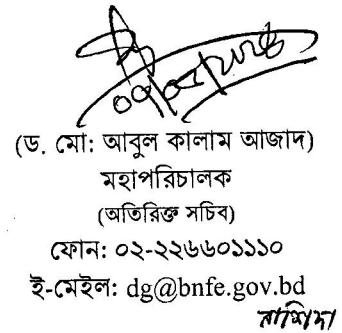 (ড. মো: আবুল কালাম আজাদ)
মহাপরিচালক
(অতিরিক্ত সচিব)
ফোন: ০২-২২৬৬০১১১০
ই-মেইল: dg@bnfe.gov.bd
রাশিদা